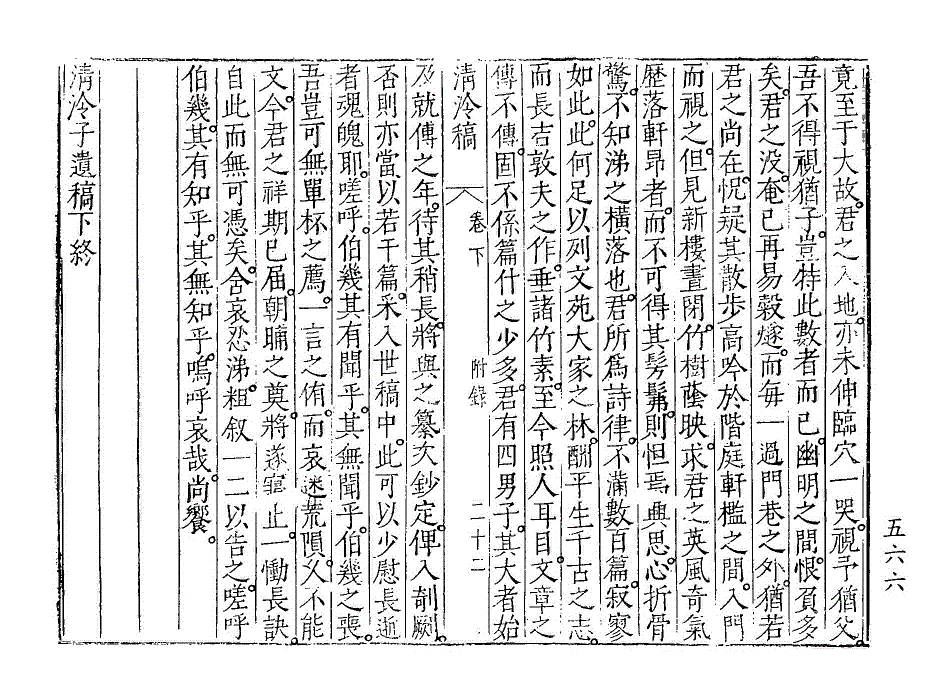 竟至于大故。君之入地。亦未伸臨穴一哭。視予猶父。
吾不得視猶子。豈特此數者而已。幽明之間。恨負多
矣。君之沒。奄已再易穀燧。而每一過門巷之外。猶若
君之尚在。怳疑其散步高吟於階庭軒檻之間。入門
而視之。但見新樓晝閉。竹樹蔭映。求君之英風奇氣
歷落軒昂者。而不可得其髣髴。則怛焉興思。心折骨
驚。不知涕之橫落也。君所爲詩律。不滿數百篇。寂寥
如此。此何足以列文苑大家之林。酬平生千古之志。
而長吉敦夫之作。垂諸竹素。至今照人耳目。文章之
傳不傳。固不係篇什之少多。君有四男子。其大者始
清泠稿 卷下 附錄 二十二
及就傅之年。待其稍長。將與之纂次鈔定。俾入剞劂。
否則亦當以若干篇。采入世稿中。此可以少慰長逝
者魂魄耶。嗟呼。伯幾其有聞乎。其無聞乎。伯幾之喪。
吾豈可無單杯之薦。一言之侑。而哀迷荒隕。久不能
文。今君之祥期已届。朝晡之奠。將遂寢止。一慟長訣。
自此而無可憑矣。舍哀忍涕。粗叙一二以告之。嗟呼
伯幾。其有知乎。其無知乎。嗚呼哀哉。尚饗。
清泠子遺稿下終
五六六